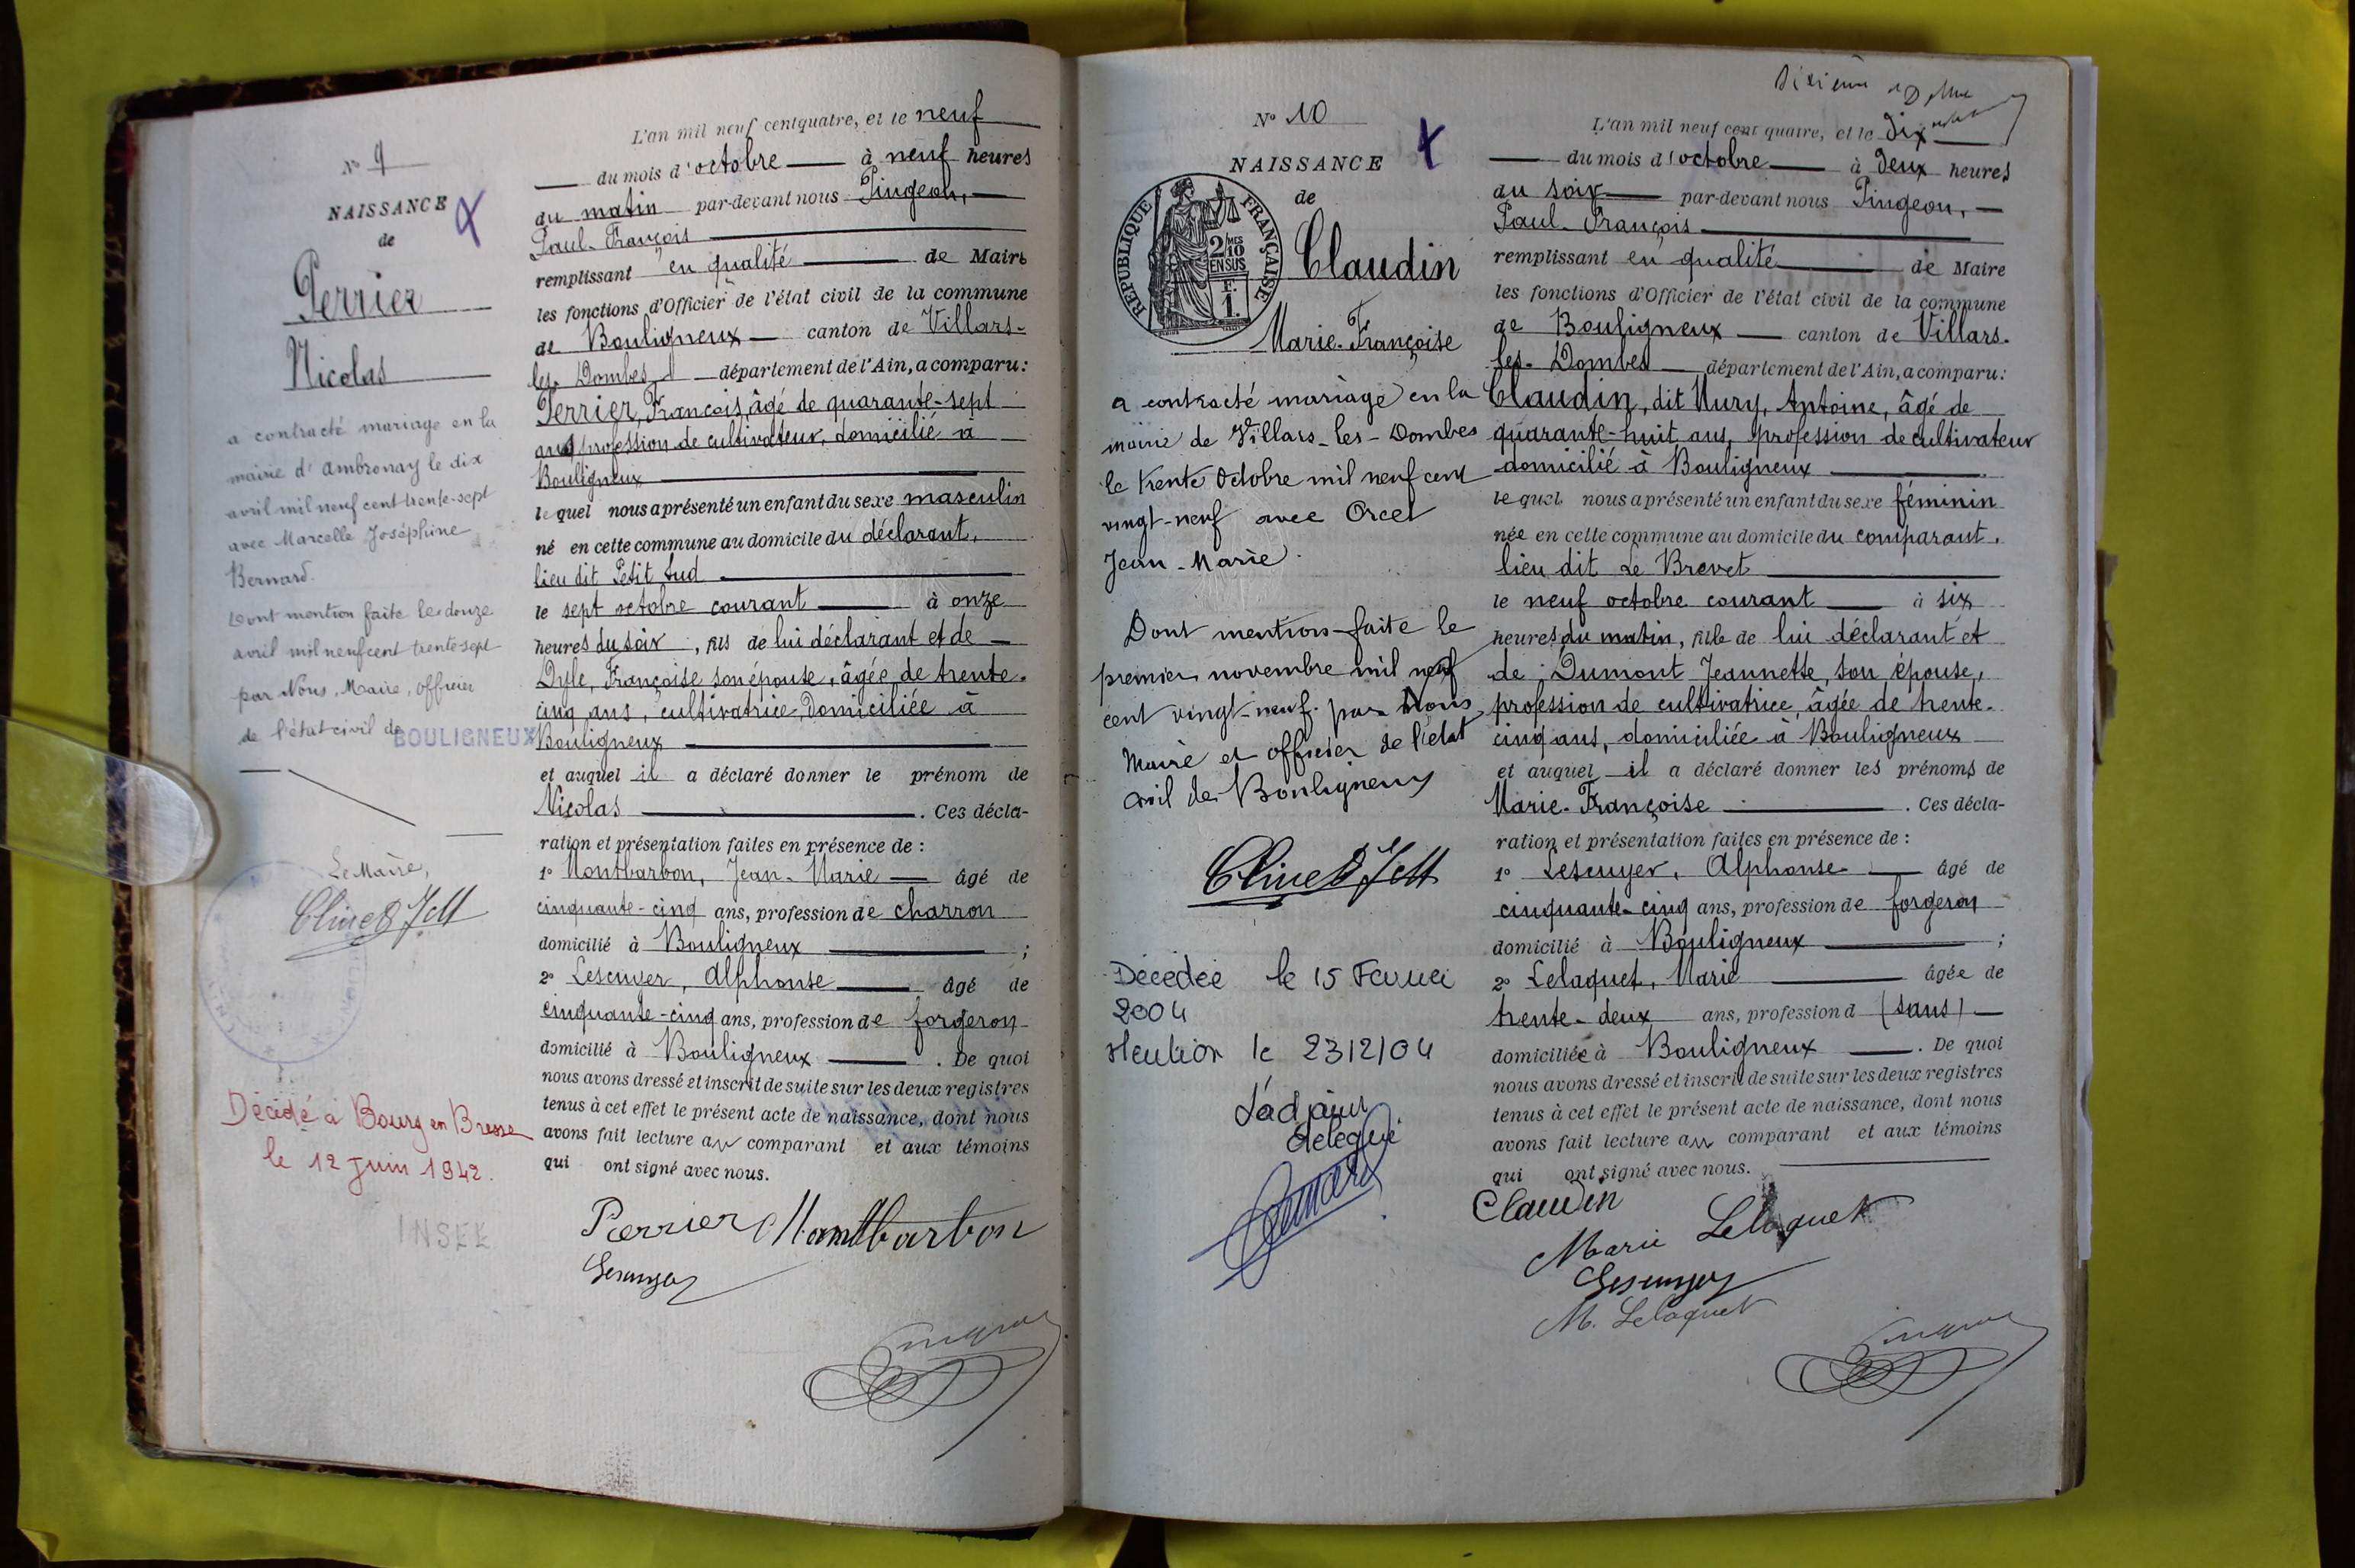 N° 9
NAISSANCE
de
Perrier
Nicolas
a contracté mariage en la
mairie d'Ambronay le dix
avril mil neuf cent trente-sept
avec Marcelle Joséphine
Bernard.
Dont mention faite le douze
avril mil neuf cent trente sept
par Nous, Maire, officier
de l'état civil de BOULIGNEUX
Le Maire,
Décédé à Bourg en Bresse
le 12 juin 1942.
INSEE
L'an mil neuf cent quatre, et le neuf
du mois d'octobre à neuf heures
du matin par-devant nous Pingeon,
Paul-François
remplissant en qualité de Maire
les fonctions d'Officier de l'état civil de la commune
de Bouligneux canton de Villars-
les-Dombes département de l'Ain, a comparu:
Perrier, François, âgé de quarante-sept
ans profession de cultivateur, domicilié à
Bouligneux
lequel nous a présenté un enfant du sexe masculin
né en cette commune au domicile du déclarant,
lieu dit Petit
le sept octobre courant à onze
heures du soir, fils de lui déclarant et de
Françoise son épouse, âgée de trente-
cinq ans, cultivatrice, domiciliée à
Bouligneux
et auquel il a déclaré donner le prénom de
Nicolas . Ces décla-
ration et présentation faites en présence de :
1° Montbarbon, Jean-Marie âgé de
cinquante-cinq ans, profession de charron
domicilié à Bouligneux ;
2° Lescuyer, Alphonse âgé de
cinquante-cinq ans, profession de forgeron
domicilié à Bouligneux . De quoi
nous avons dressé et inscrit de suite sur les deux registres
tenus à cet effet le présent acte de naissance, dont nous
avons fait lecture au comparant et aux témoins
qui ont signé avec nous.
Perrier Montbarbon
Lescuyer
Pingeon
N° 10
NAISSANCE
de
RÉPUBLIQUE FRANÇAISE
2 MES
10
EN SUS
F.
1.
Claudin
Marie-Françoise
a contracté mariage en la
mairie de Villars-les-Dombes
le trente octobre mil neuf cent
vingt-neuf avec Orcet
Jean-Marie.
Dont mention faite le
premier novembre mil neuf
cent vingt-neuf. par Nous
Maire et officier de l'état
civil de Bouligneux
Décédée le 15 Février
2004
Mention le 23/2/04
L'adjoint
délégué
Dixième
L'an mil neuf cent quatre, et le dix
du mois d'octobre à deux heures
du soir par-devant nous Pingeon,
Paul-François
remplissant en qualité de Maire
les fonctions d'Officier de l'état civil de la commune
de Bouligneux canton de Villars-
les-Dombes département de l'Ain, a comparu:
Claudin, dit Mury, Antoine, âgé de
quarante-huit ans, profession de cultivateur
domicilié à Bouligneux
lequel nous a présenté un enfant du sexe féminin
née en cette commune au domicile du comparant,
lieu dit Le Brevet
le neuf octobre courant à six
heures du matin, fille de lui déclarant et
de Dumont Jeannette, son épouse,
profession de cultivatrice, âgée de trente-
cinq ans, domiciliée à Bouligneux
et auquel il a déclaré donner les prénoms de
Marie-Françoise . Ces décla-
ration et présentation faites en présence de :
1° Lescuyer, Alphonse âgé de
cinquante-cinq ans, profession de forgeron
domicilié à Bouligneux ;
2° Lelaquet, Marie âgée de
trente-deux ans, profession d (sans)
domiciliée à Bouligneux . De quoi
nous avons dressé et inscrit de suite sur les deux registres
tenus à cet effet le présent acte de naissance, dont nous
avons fait lecture au comparant et aux témoins
qui ont signé avec nous.
Claudin
Marie Lelaquet
Lescuyer
M. Lelaquet
Pingeon